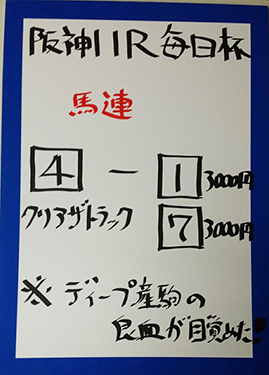 阪神11R毎日杯
馬連
4 - 1 3000円
クリアザトラック 7 3000円
※ディープ産駒の
良血が目覚めた!